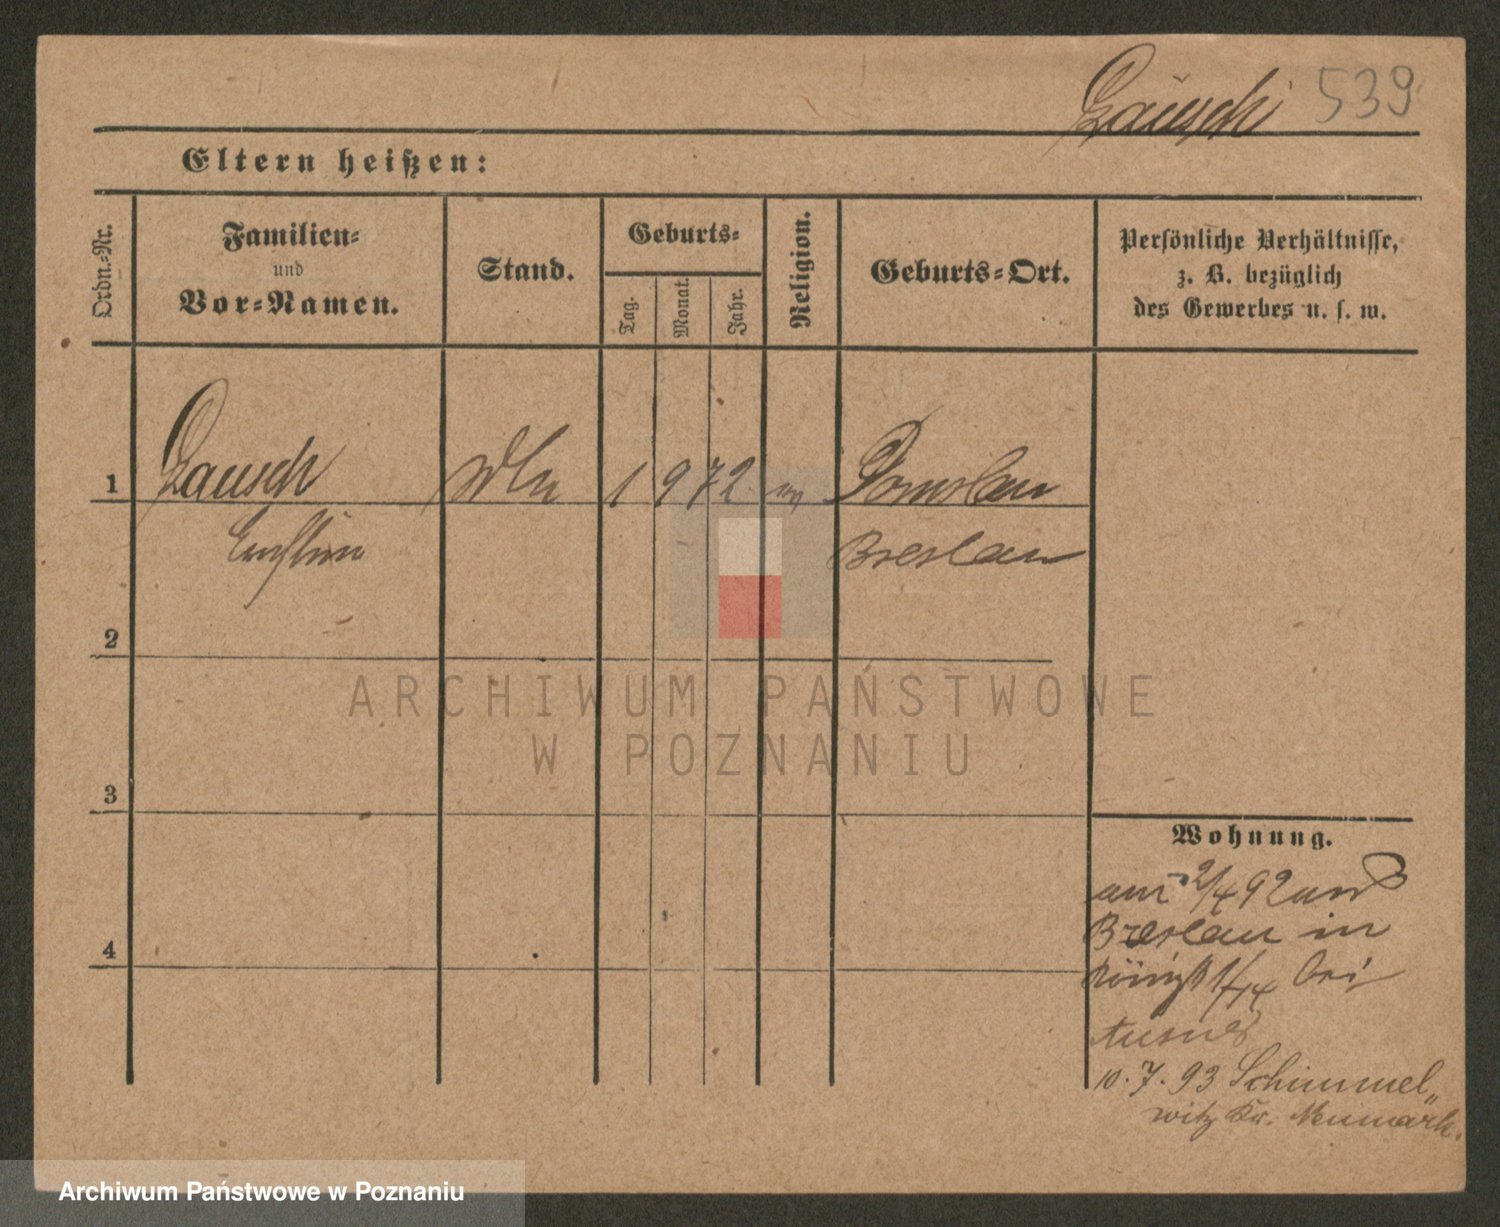 539
Eltern heißen:
Ordn.-Nr.
Familien-
und
Vor-Namen.
Stand.
Geburts-
Tag.
Monat.
Jahr.
Religion.
Geburts-Ort.
Persönliche Verhältnisse,
z. B. bezüglich
des Gewerbes u. s. w.
1 1 9 72
Breslau
2
3
4
Wohnung.
am 2/4 92 aus
Breslau in
bei
10. 7. 93 Schimmel„
witz Kr. Neumark.
ARCHIWUM PAŃSTWOWE
W POZNANIU
Archiwum Państwowe w Poznaniu